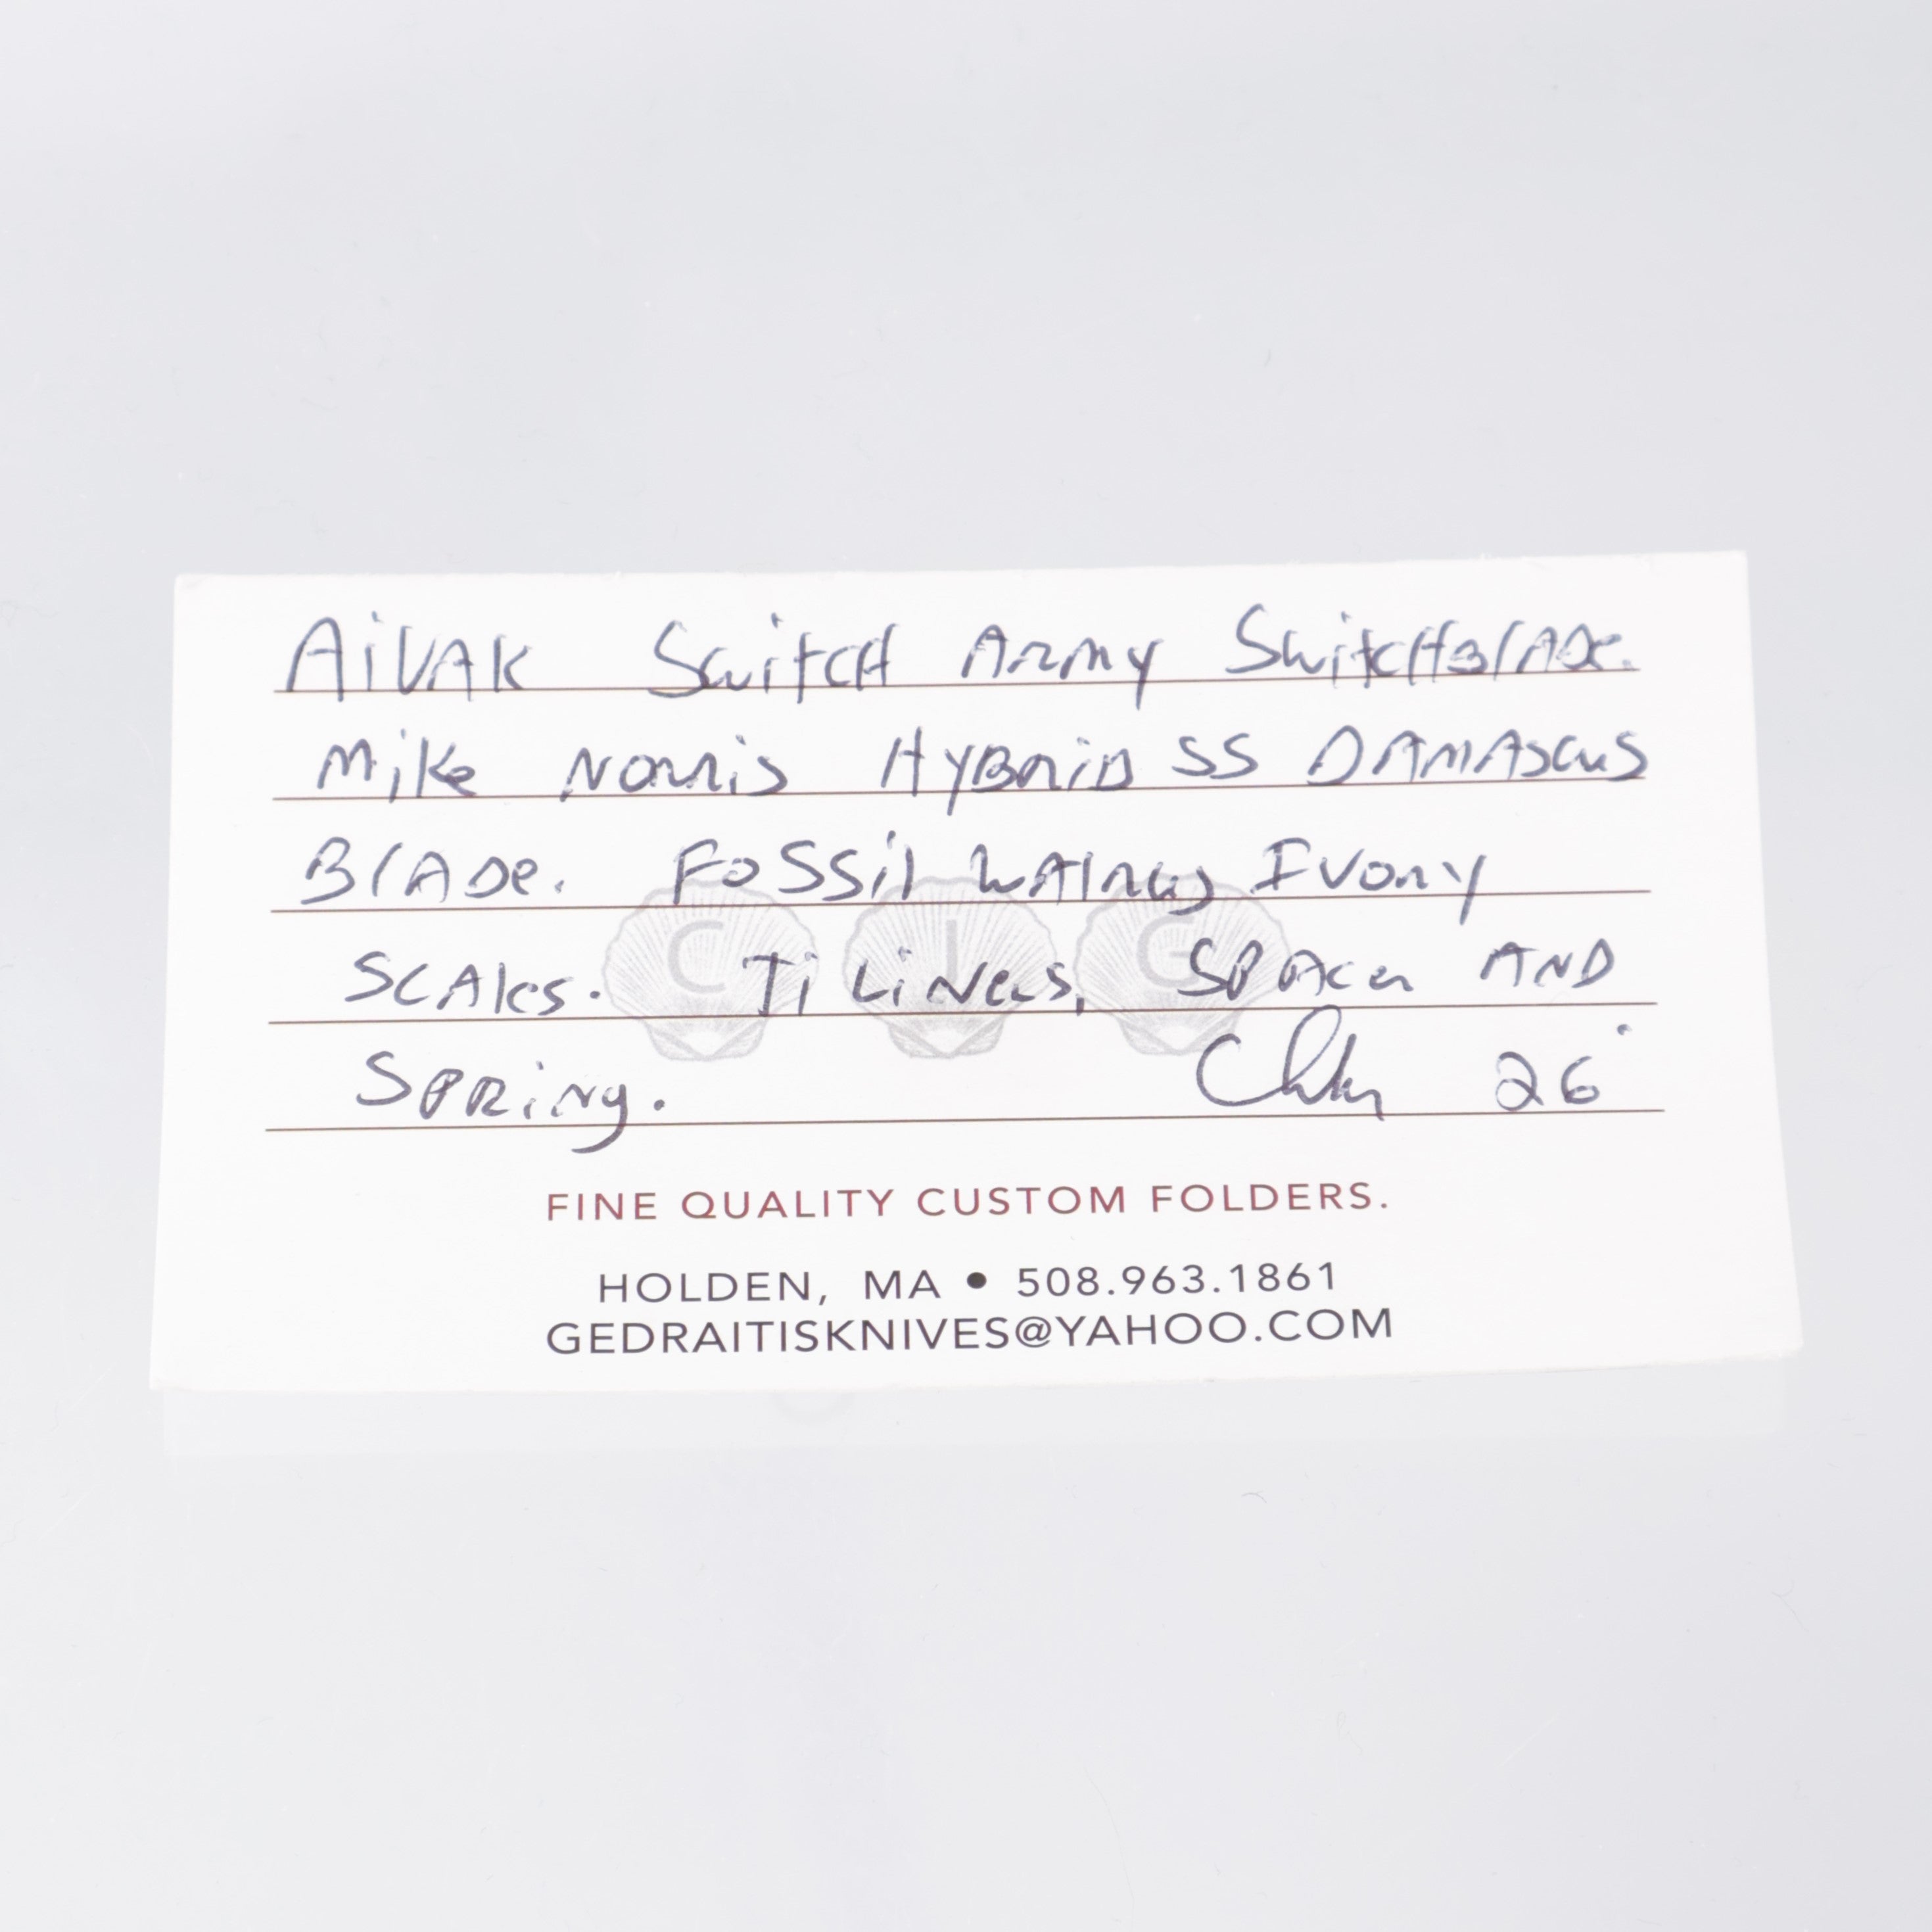 AiVAK SwitCH Army SwitCHBlADe.
Mike Norris HYBRiD SS DAMASCUS
BlADe. FoSSil WAlrus Ivory
SCAles. Ti LiNers, SPACer AND
SPRiNg. 26
C I G
FINE QUALITY CUSTOM FOLDERS.
HOLDEN, MA • 508.963.1861
GEDRAITISKNIVES@YAHOO.COM